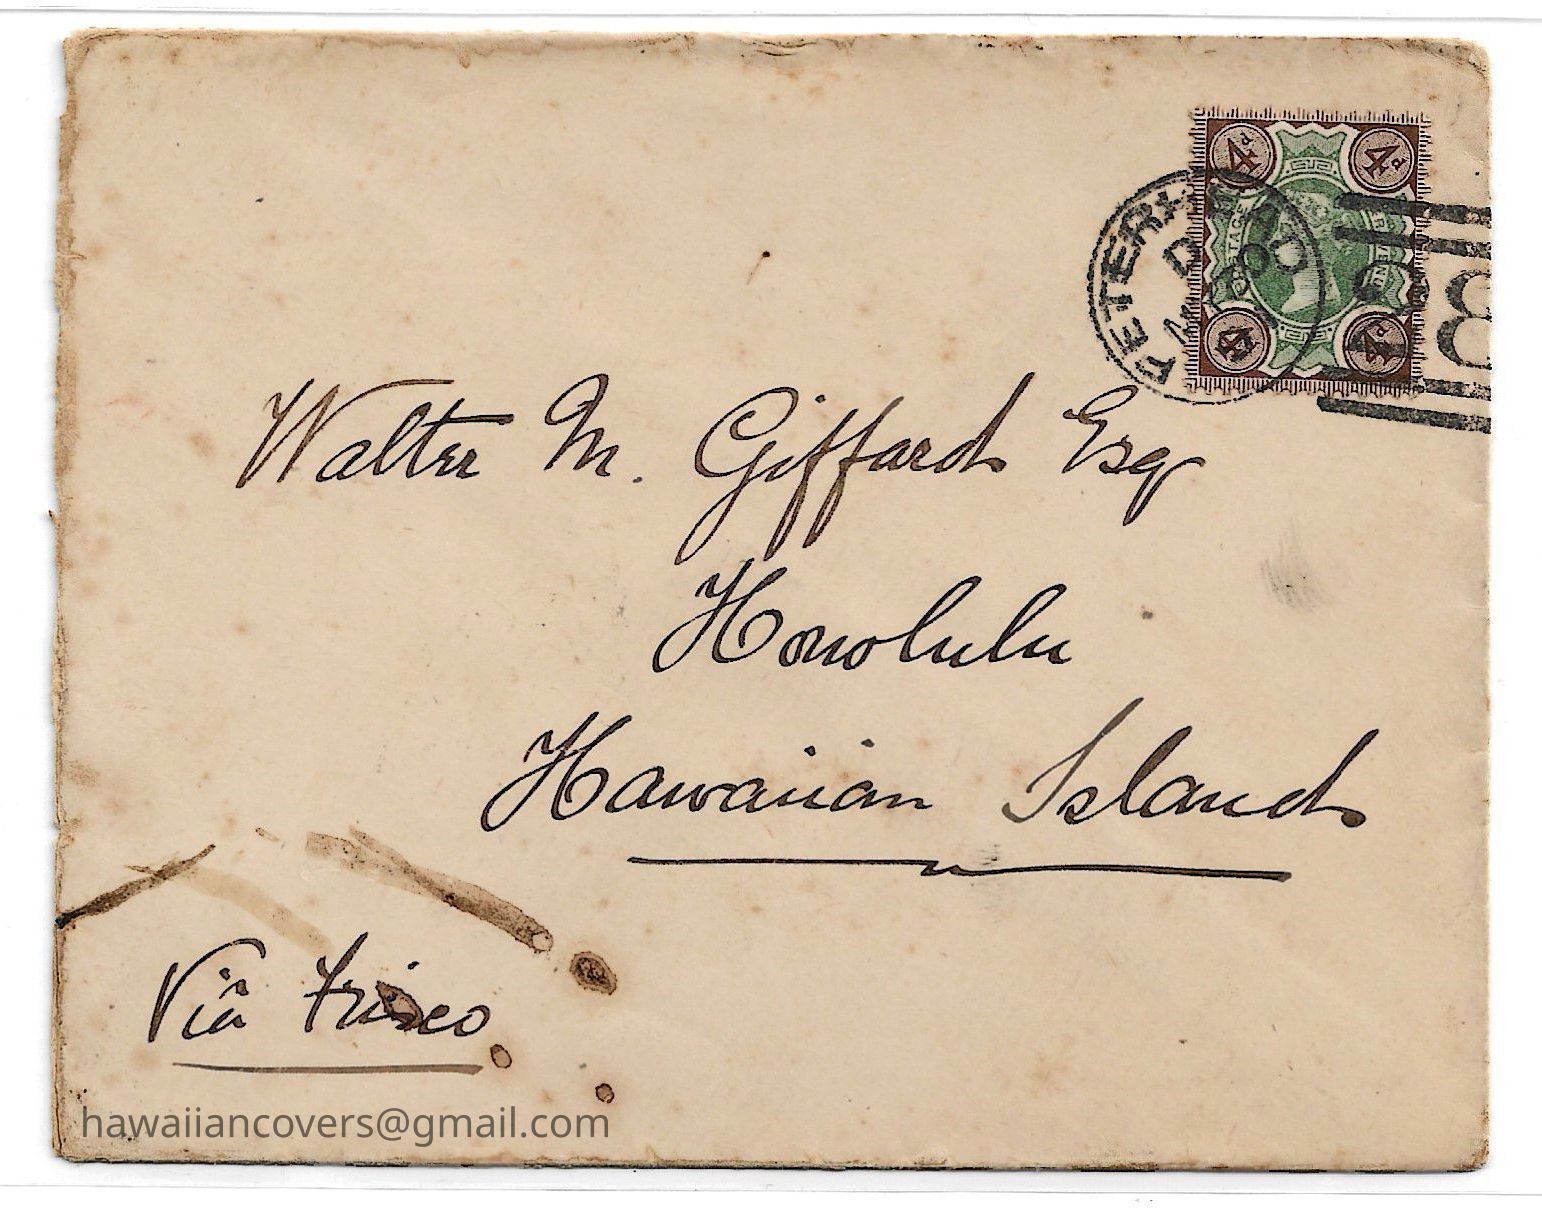 4d 4d
4d 4d
Walter M. Giffard Esq
Honolulu
Hawaiian Islands
Viâ Frisco
hawaiiancovers@gmail.com